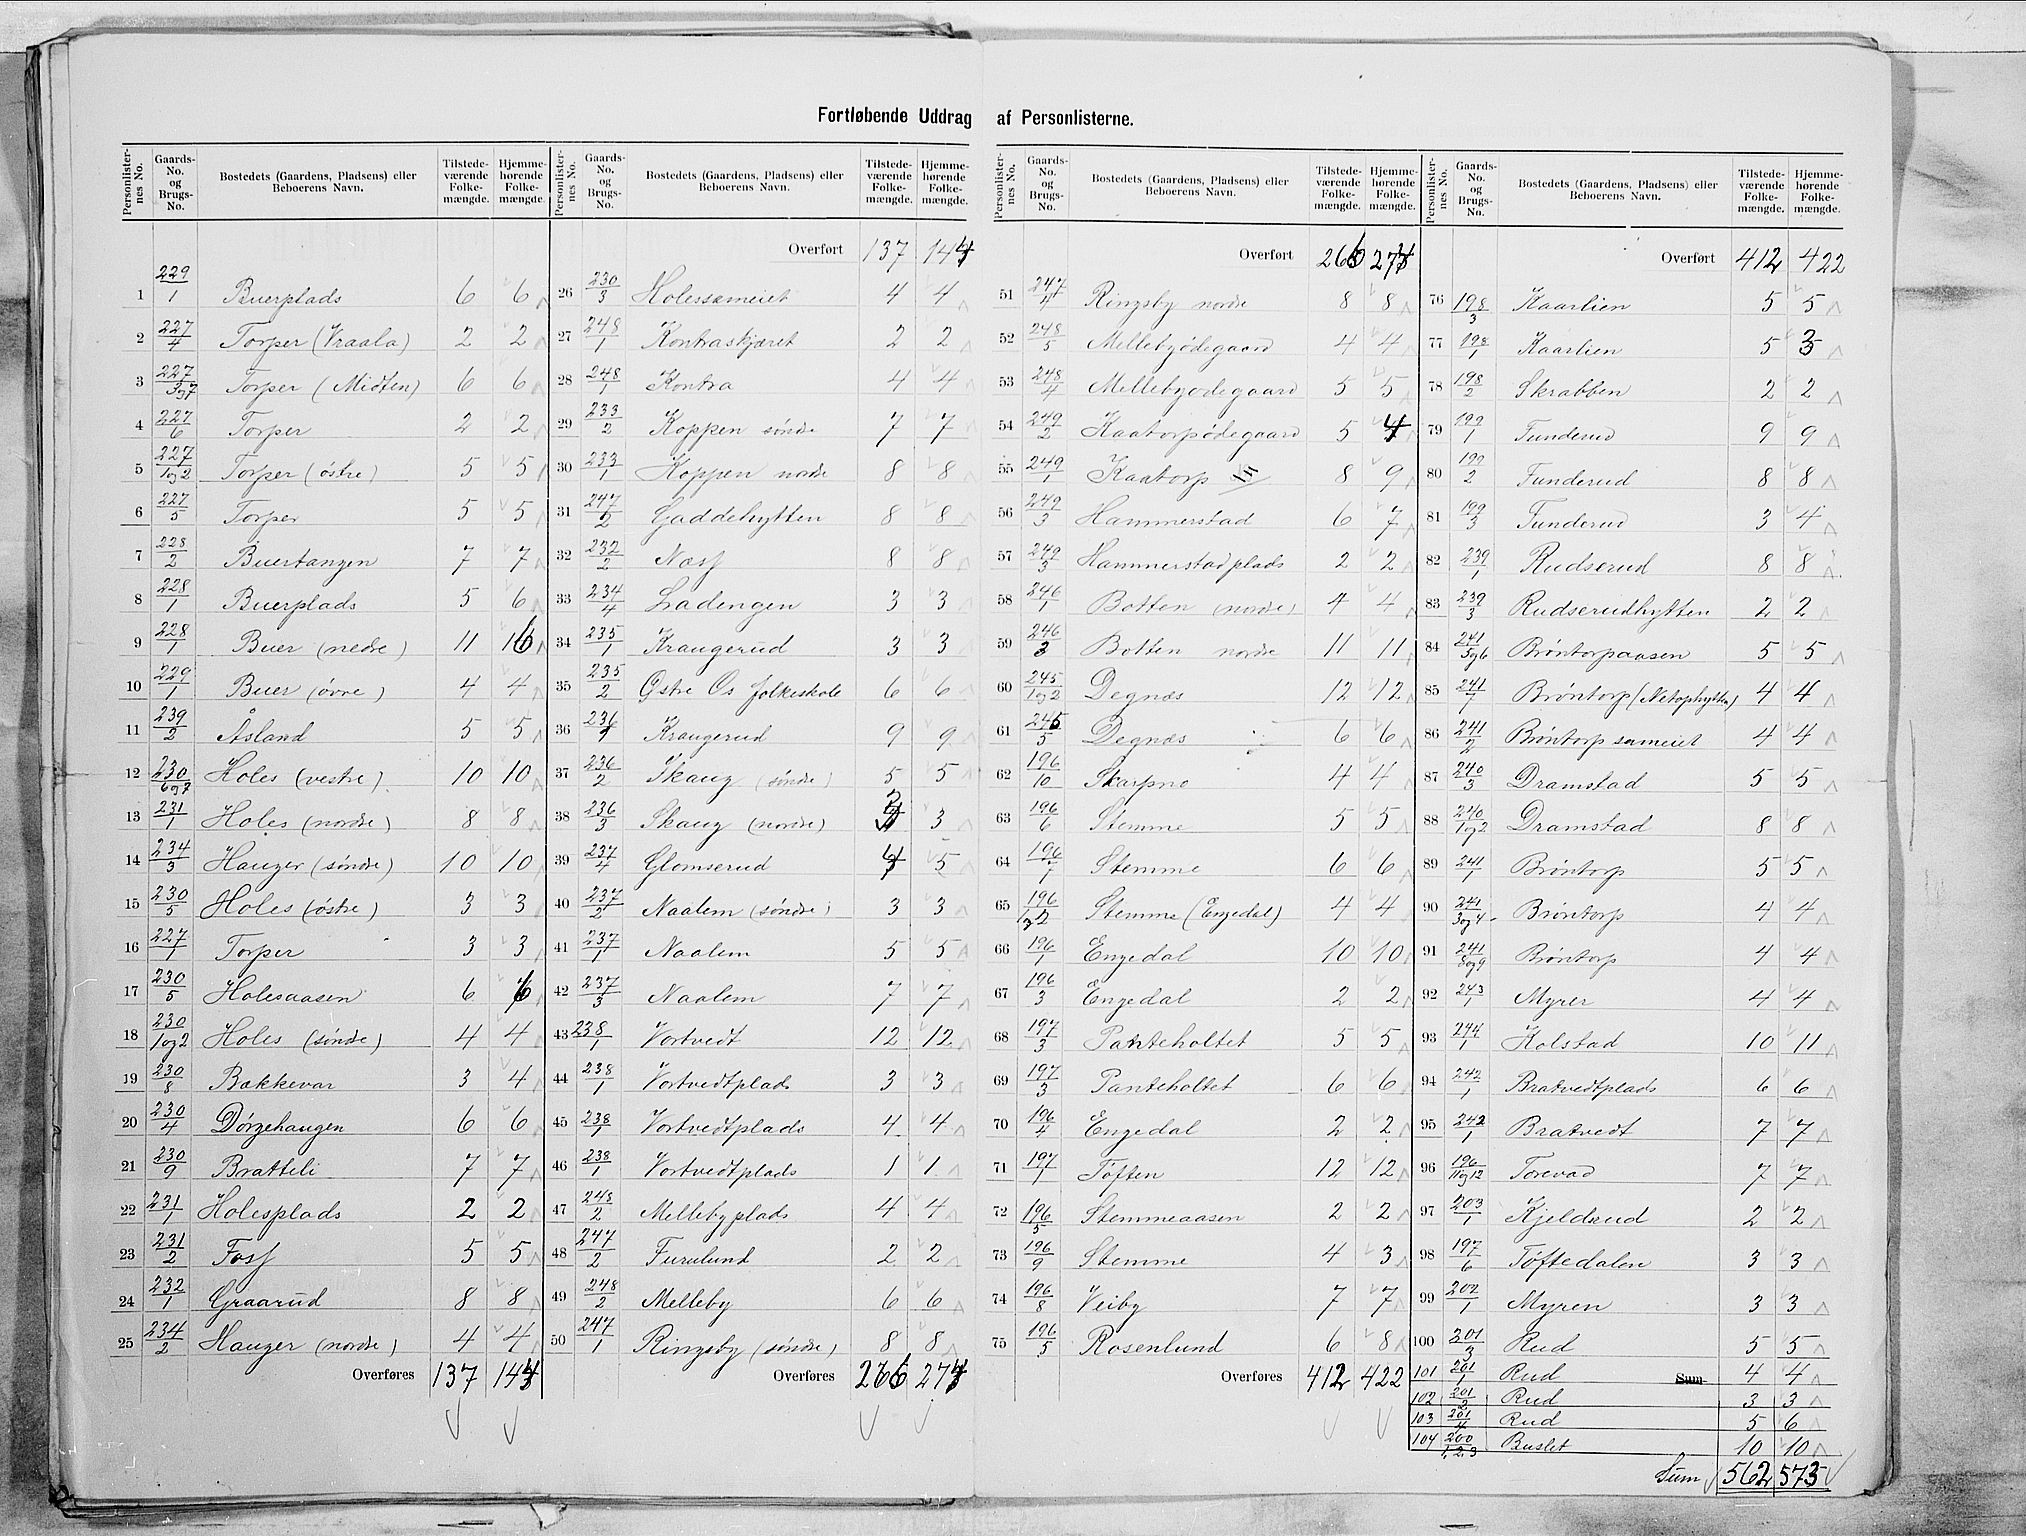 Fortløbende Uddrag af Personlisterne.
Personlisternes No. | Gaards-No. og Brugs-No. | Bostedets (Gaardens, Pladsens) eller Beboerens Navn. | Tilstedeværende Folkemængde. | Hjemmehørende Folkemængde.
1 229/1 Buerplads 6 6
2 227/4 Torper (Vraala) 2 2
3 227/3og7 Torper (Midten) 6 6
4 227/6 Torper 2 2
5 227/1og2 Torper (østre) 5 5
6 227/5 Torper 5 5
7 228/2 Buertangen 7 7
8 228/1 Buerplads 5 6
9 228/1 Buer (nedre) 11 16
10 229/1 Buer (øvre) 4 4
11 239/2 Åsland 5 5
12 230/6og7 Holes (vestre) 10 10
13 231/1 Holes (nordre) 8 8
14 234/3 Hauger (søndre) 10 10
15 230/5 Holes (østre) 3 3
16 227/1 Torper 3 3
17 230/5 Holesaasen 6 6
18 230/1og2 Holes (søndre) 4 4
19 230/8 Bakkevar 3 4
20 230/4 Dørgehaugen 6 6
21 230/9 Bratteli 7 7
22 231/1 Holesplads 2 2
23 231/2 Foss 5 5
24 232/1 Graarud 8 8
25 234/2 Hauger (nordre) 4 4
Overføres 137 143
Personlisternes No. | Gaards-No. og Brugs-No. | Bostedets (Gaardens, Pladsens) eller Beboerens Navn. | Tilstedeværende Folkemængde. | Hjemmehørende Folkemængde.
Overført 137
26 230/3 Holessameiet 4 4
27 248/1 Kontraskjæret 2 2
28 248/1 Kontra 4 4
29 233/2 Koppen søndre 7 7
30 233/1 Koppen nordre 8 8
31 247/2 Gaddehytten 8 8
32 232/2 Næss 8 8
33 234/4 Ladengen 3 3
34 235/1 Kraugerud 3 3
35 235/2 Østre Os folkeskole 6 6
36 236/1 Kraugerud 9 9
37 236/2 Skaug (søndre) 5 5
38 236/3 Skaug (nordre) 3
39 237/4 Glomserud 5
40 237/2 Naalem (søndre) 3 3
41 237/1 Naalem 5 5
42 237/3 Naalem 7 7
43 238/1 Vortvedt 12 12
44 238/1 Vortvedtplads 3 3
45 238/1 Vortvedtplads 4 4
46 238/1 Vortvedtplads 1 1
47 248/2 Mellebyplads 4 4
48 247/2 Furulund 2 2
49 248/2 Melleby 6 6
50 247/1 Ringsby (søndre) 8 8
Overføres 266
Personlisternes No. | Gaards-No. og Brugs-No. | Bostedets (Gaardens, Pladsens) eller Beboerens Navn. | Tilstedeværende Folkemængde. | Hjemmehørende Folkemængde.
Overført 266
51 247/4 Ringsby nordre 8 8
52 248/5 Mellebyødegaard 4 4
53 248/4 Mellebyødegaard 5 5
54 249/2 Kaatorpødegaard 5 4
55 249/1 Kaatorp 8 9
56 249/3 Hammerstad 6 7
57 249/3 Hammerstadplads 2 2
58 246/1 Botten (nordre) 4 4
59 246/3 Botten nordre 11 11
60 245/1og2 Degnæs 12 12
61 245/5 Degnæs 6 6
62 196/10 Skarpno 4 4
63 196/6 Stemme 5 5
64 196/7 Stemme 6 6
65 196/1og2 Stemme (Engedal) 4 4
66 196/1 Engedal 10 10
67 196/3 Engedal 2 2
68 197/3 Panteholtet 5 5
69 197/3 Panteholtet 6 6
70 196/4 Engedal 2 2
71 197/1 Töften 12 12
72 196/5 Stemmeaasen 2 2
73 196/9 Stemme 4 3
74 196/8 Veiby 7 7
75 196/5 Rosenlund 6 8
Overføres 412 422
Personlisternes No. | Gaards-No. og Brugs-No. | Bostedets (Gaardens, Pladsens) eller Beboerens Navn. | Tilstedeværende Folkemængde. | Hjemmehørende Folkemængde.
Overført 412 422
76 198/3 Kaarlien 5 5
77 198/1 Kaarlien 5 3
78 198/2 Skrabben 2 2
79 199/1 Funderud 9 9
80 199/2 Funderud 8 8
81 199/3 Funderud 3 4
82 239/1 Rudserud 8 8
83 239/3 Rudserudhytten 2 2
84 241/5og6 Brøntorpaasen 5 5
85 241/7 Brøntorp (Netophytten) 4 4
86 241/2 Brøntorp sameiet 4 4
87 240/3 Dramstad 5 5
88 240/1og2 Dramstad 8 8
89 241/1 Brøntorp 5 5
90 241/3og4 Brøntorp 4 4
91 241/8og9 Brøntorp 4 4
92 243/1 Myrer 4 4
93 244/1 Kolstad 10 11
94 242/1 Bratvedtplads 6 6
95 242/1 Bratvedt 7 7
96 196/11og12 Torevad 7 7
97 203/1 Kjeldsrud 2 2
98 197/6 Töftedalen 3 3
99 202/1 Myren 3 3
100 201/3 Rud 5 5
101 201/1 Rud 4 4
102 201/2 Rud 3 3
103 201/4 Rud 5 6
104 200/1,2,3 Buslet 10 10
Sum 562 573